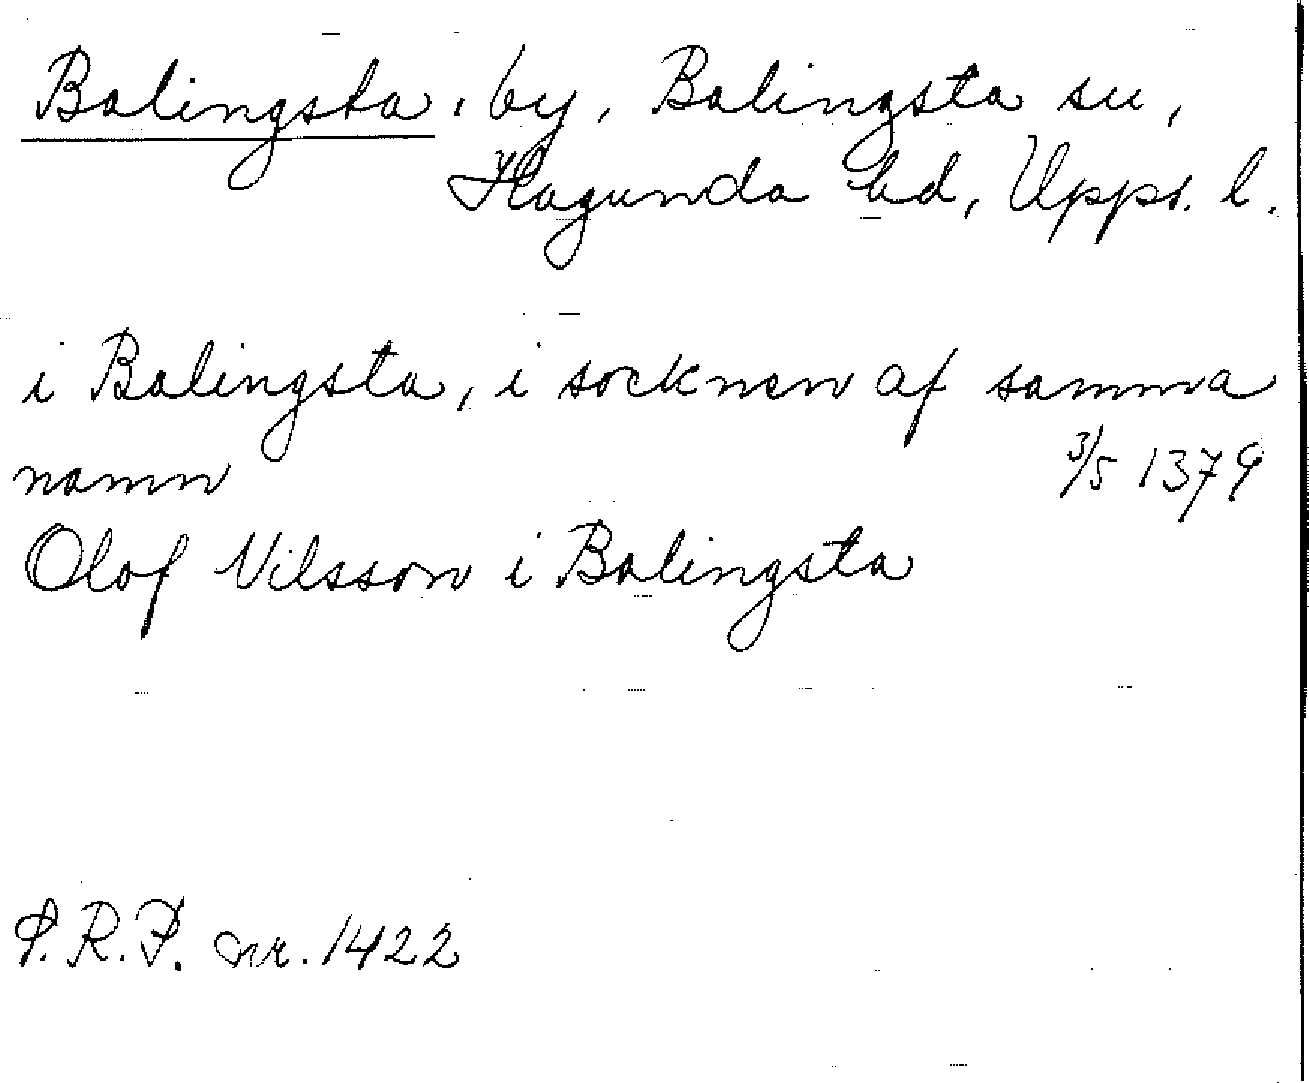 Balingsta, by, Balingsta sn,
Hagunda hd, Upps. l.
i Balingsta, i socknen af samma
namn 3/5 1379
Olof Nilsson i Balingsta
S.R.P. nr. 1422